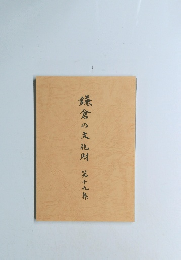 鎌倉の文化財 第十九集